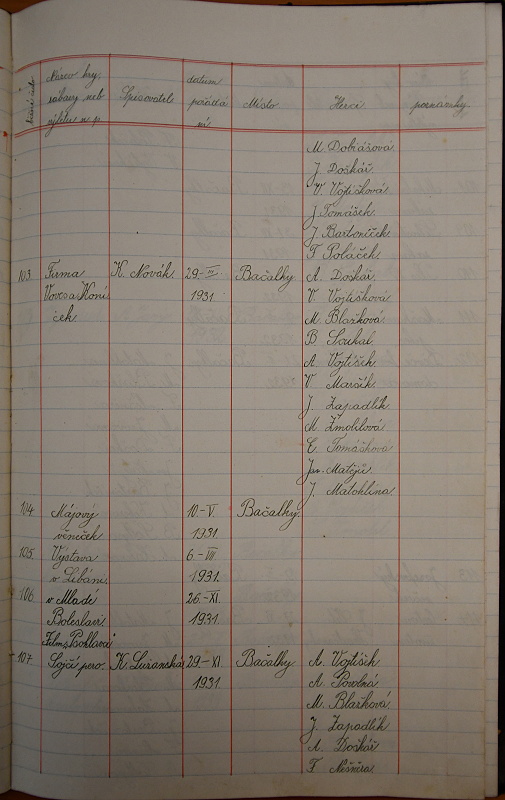 Název hry, zábavy neb výletu n.p. Spisovatel datum pořádání Místo Herci poznámky.
M. Dobiášová
J. Doškář.
V. Vojtíšková
J. Tomášek.
J. Bartoníček
F. Poláček.
103. Firma K. Novák. 29.-III. Bačalky. A. Doškář.
Voves a Koní 1931. V. Vojtíšková
ček. M. Blažková
B. Soukal.
A. Vojtíšek
V. Marčík.
J. Zapadlík.
M. Žmolilová
E. Tomášková
Jar. Matějů
J. Matohlína.
104. Májový 10.-V. Bačalky.
věneček 1931.
105. Výstava 6-VII.
v Libáni 1931.
106. v Mladé 26.-XI.
Boleslavi 1931.
Film
107. Sojčí pero. K. Lužanská 29.-XI. Bačalky A. Vojtíšek
1931. A. Povolná
M. Blažková.
J. Zapadlík
A. Doškář
F.